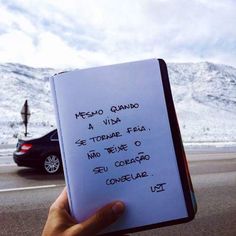 MESMO QUANDO
A VIDA
SE TORNAR FRIA,
NÃO DEIXE O
SEU CORAÇÃO
CONGELAR.